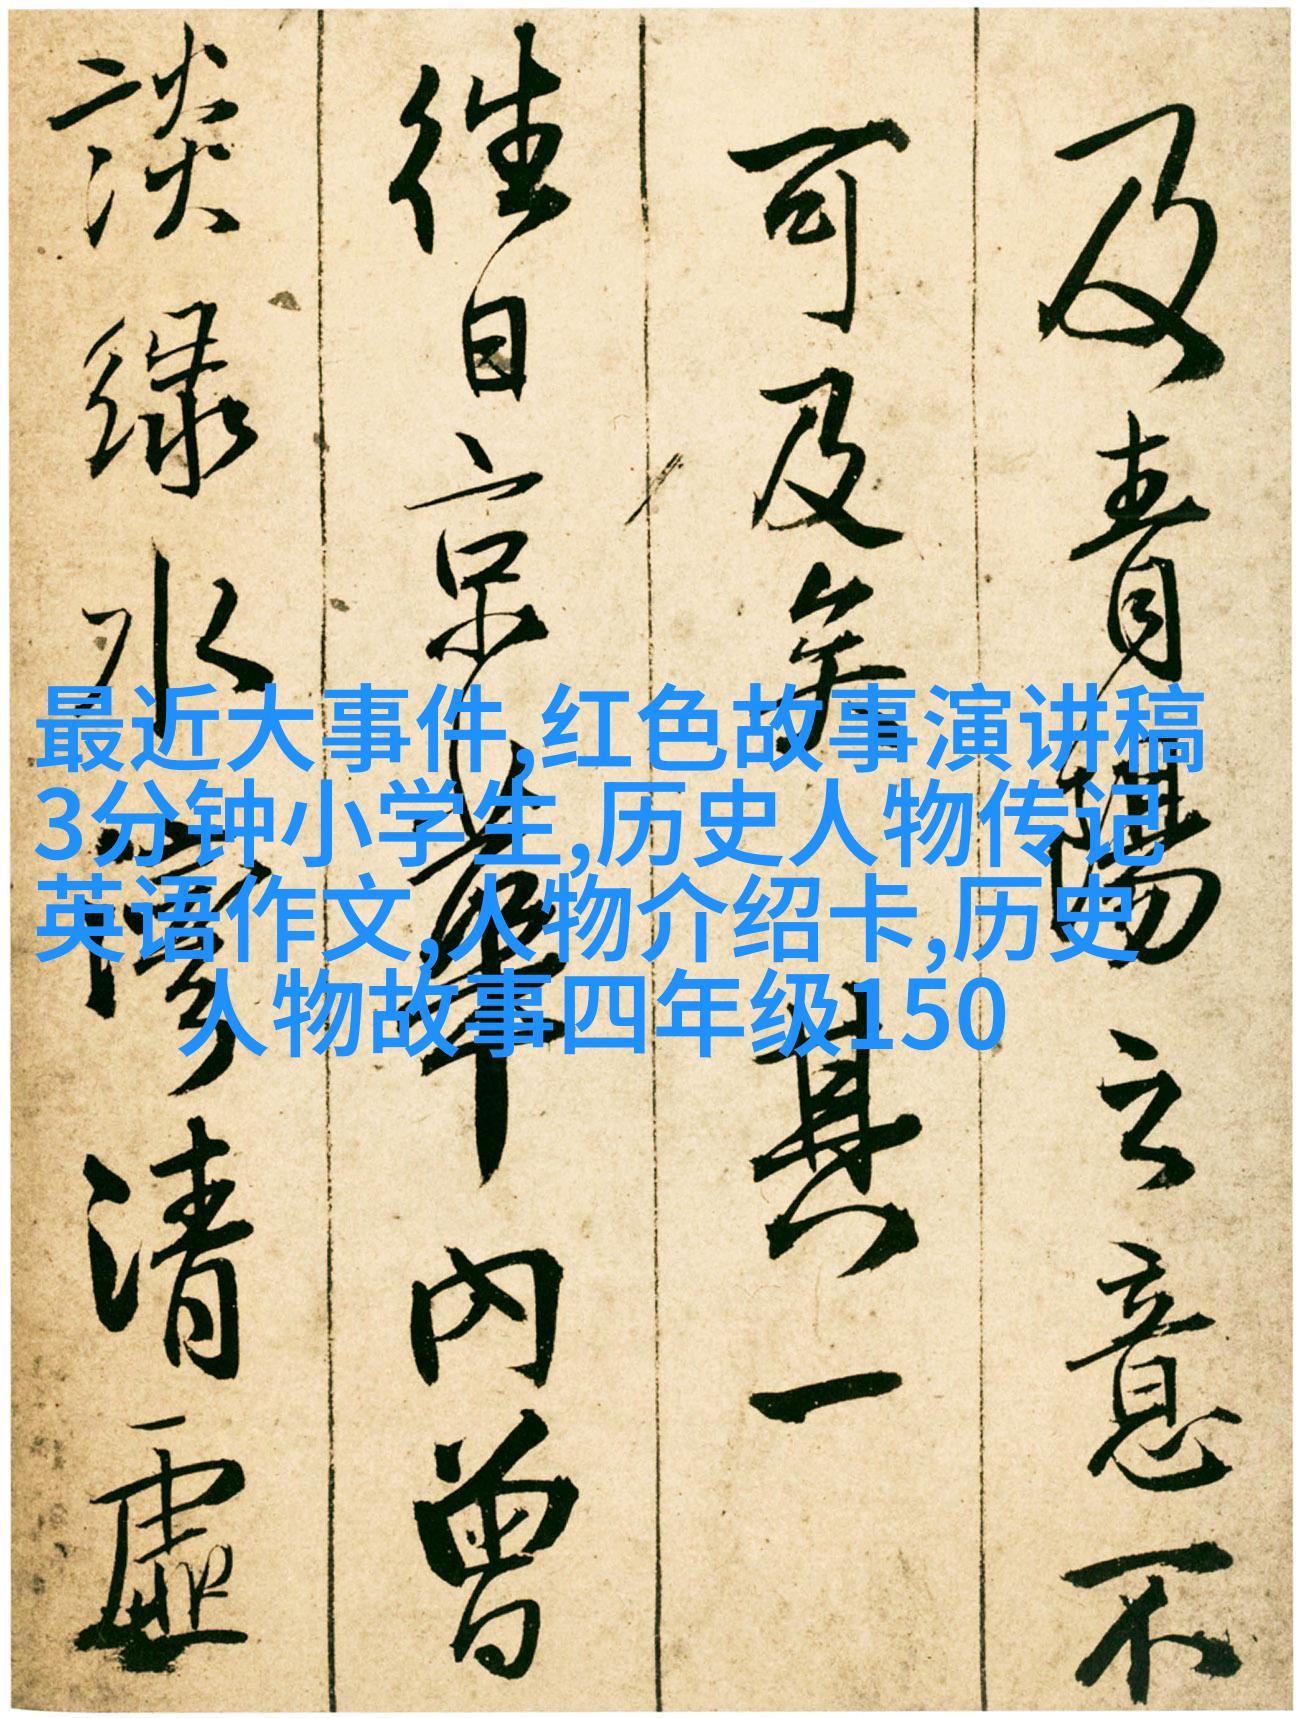 及青陽之意不
可及矣其一
往日京華内曾
談緑水濱清虛
最近大事件,红色故事演讲稿
3分钟小学生,历史人物传记
英语作文,人物介绍卡,历史
人物故事四年级150